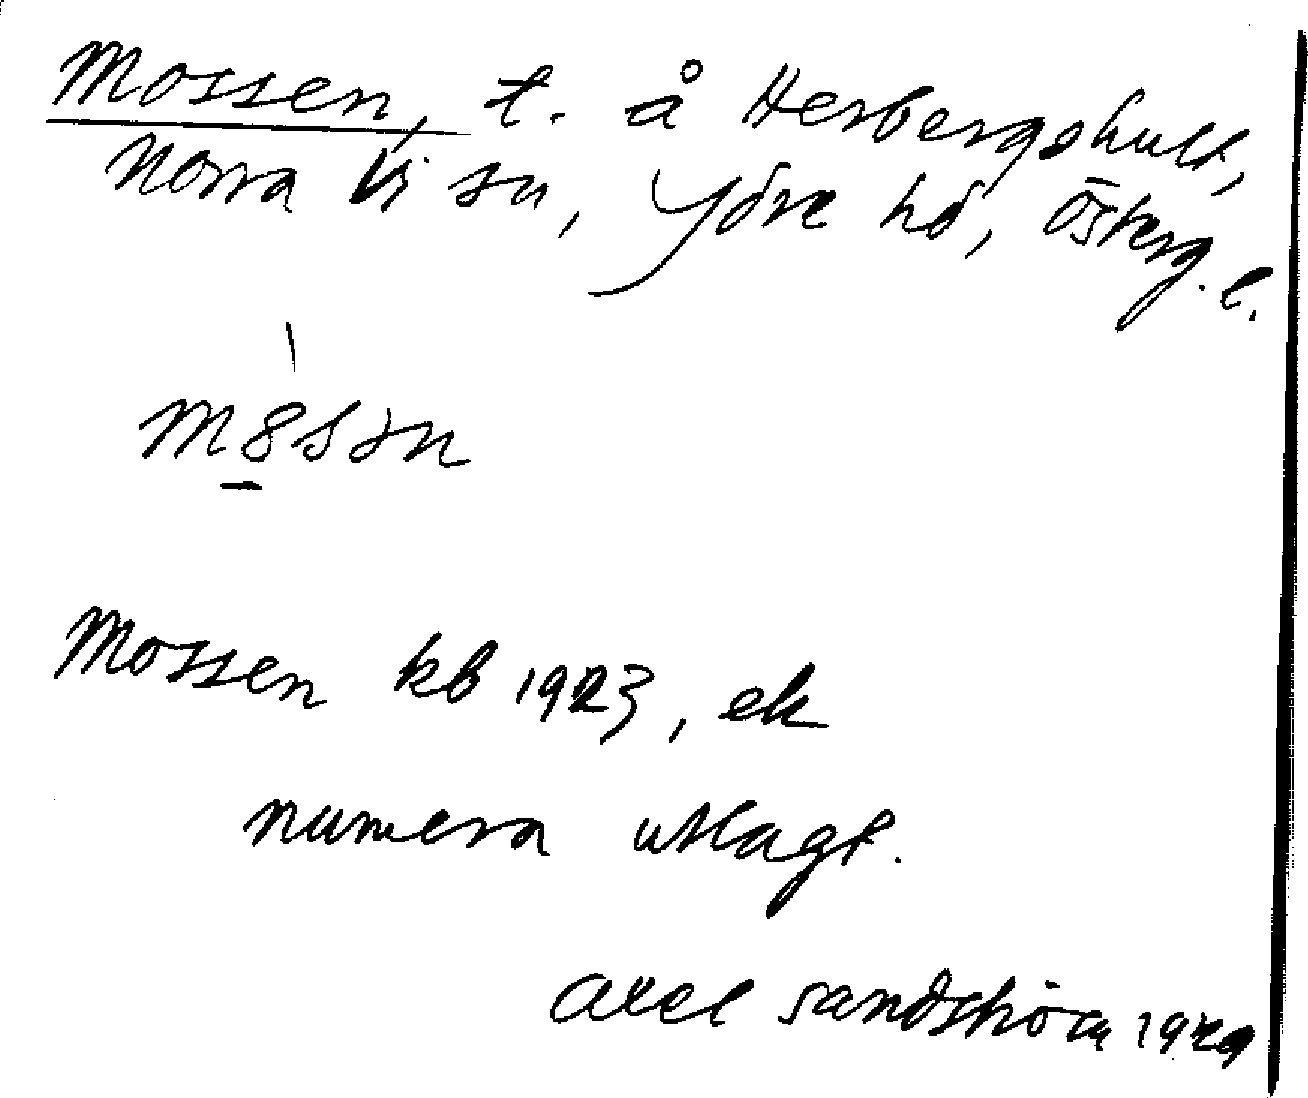 Mossen, t. å Herbergshult,
Norra Vi sn, Ydre hd, Österg. l.
m8sən
Mossen kb 1923, ek
numera utlagt.
Axel Sandström 1929